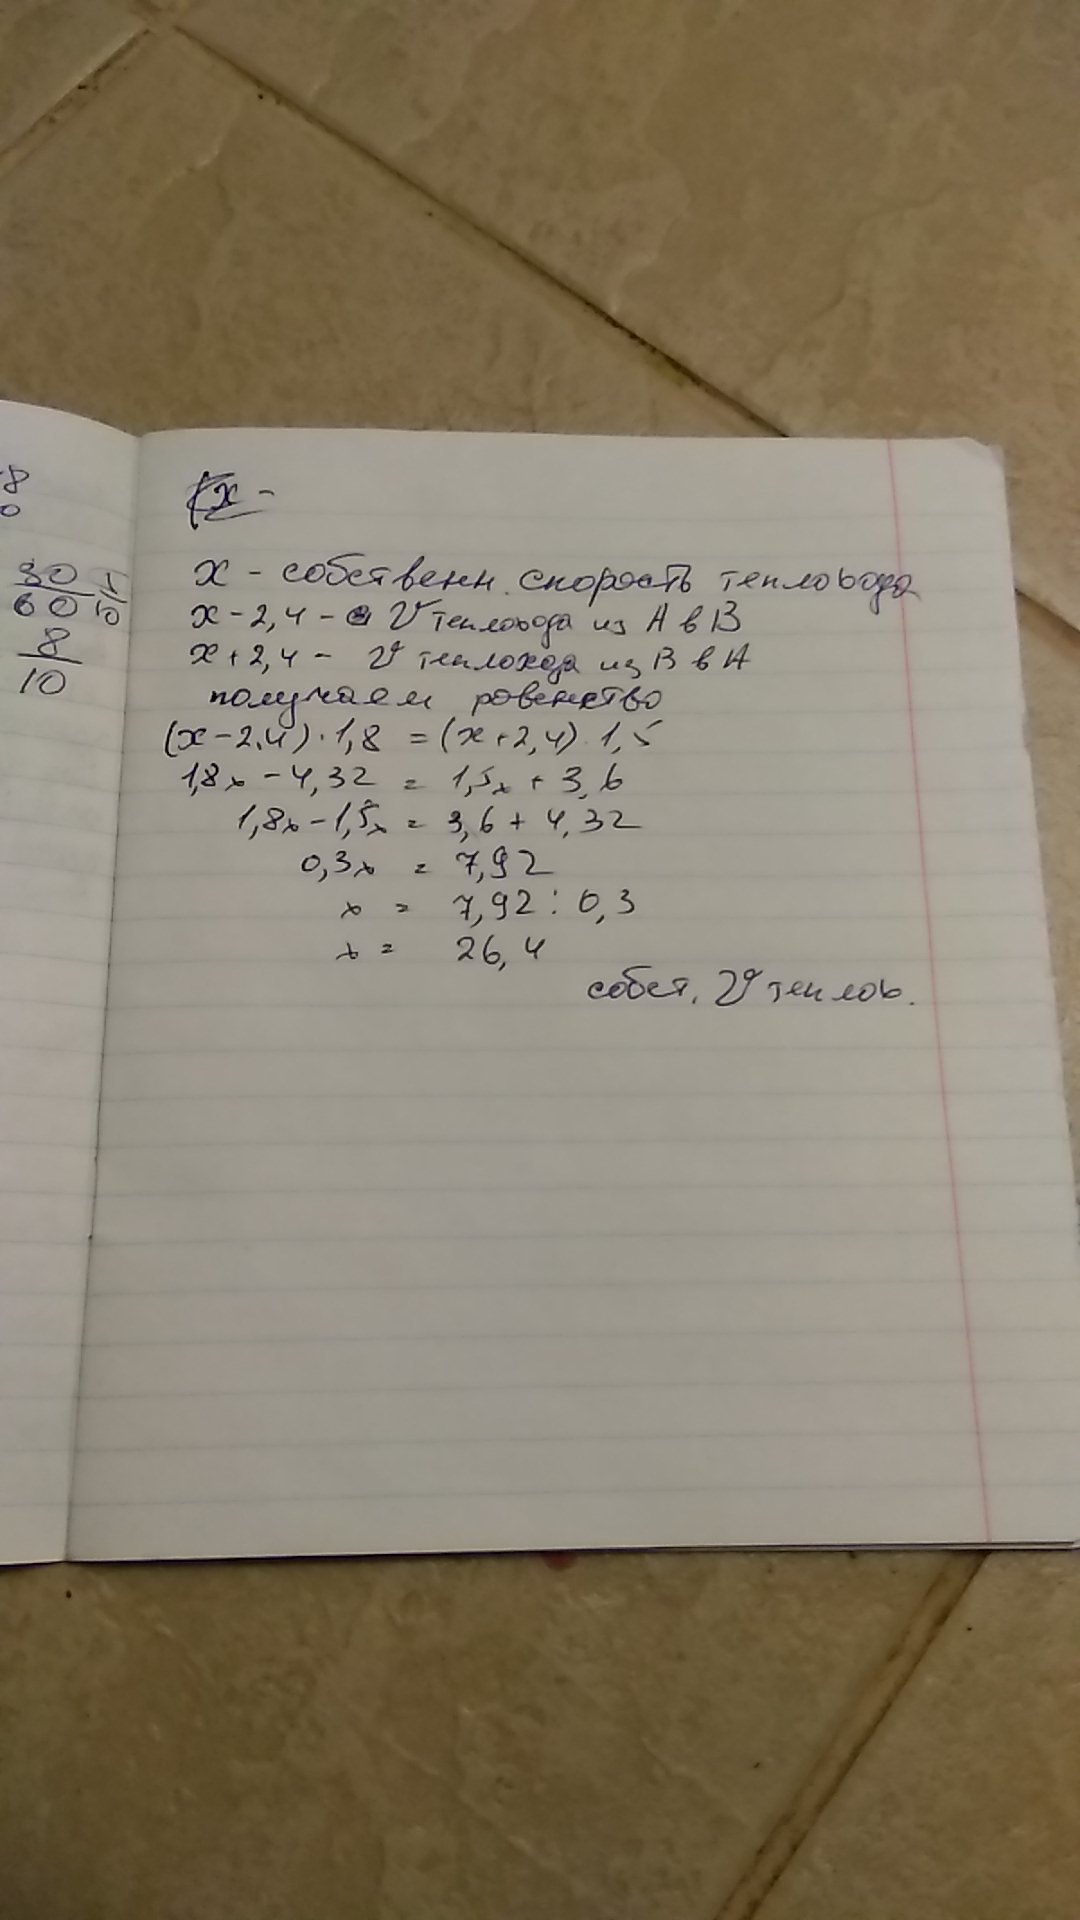 8
0
30 1
60 10
8
10
x -
x - собственн. скорость теплохода
x - 2,4 - V теплохода из А в В
x + 2,4 - V теплохода из В в А
получаем равенство
(x - 2,4) · 1,8 = (x + 2,4) · 1,5
1,8x - 4,32 = 1,5x + 3,6
1,8x - 1,5x = 3,6 + 4,32
0,3x = 7,92
x = 7,92 : 0,3
x = 26,4
собст. V теплох.